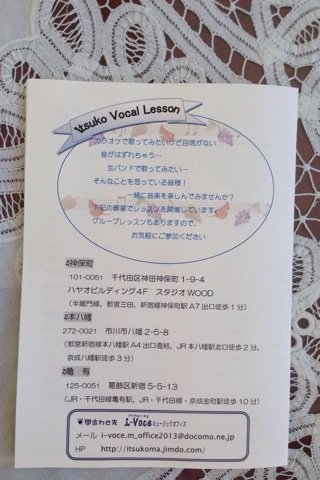 Itsuko Vocal Lesson
カラオケで歌ってみたいけど自信がない
音がはずれちゃう…
生バンドで歌ってみたい…
そんなことを思っている皆様！
一緒に音楽を楽しんでみませんか？
下記の教室でレッスンを開催しています。
グループレッスンもありますので、
お気軽にご参加ください
♫神保町
101-0051 千代田区神田神保町1-9-4
ハヤオビルディング4F スタジオWOOD
（半蔵門線、都営三田、新宿線神保町駅A7出口徒歩1分）
♫本八幡
272-0021 市川市八幡2-5-8
（都営新宿線本八幡駅A4出口直結、JR本八幡駅北口徒歩2分、
京成八幡駅徒歩3分）
♫亀 有
125-0051 葛飾区新宿5-5-13
（JR・千代田線亀有駅、JR・千代田線・京成金町駅徒歩10分）
問合わせ先 i-Voceミュージックオフィス
メール i-voce.m_office2013@docomo.ne.jp
HP http://itsukoma.jimdo.com/